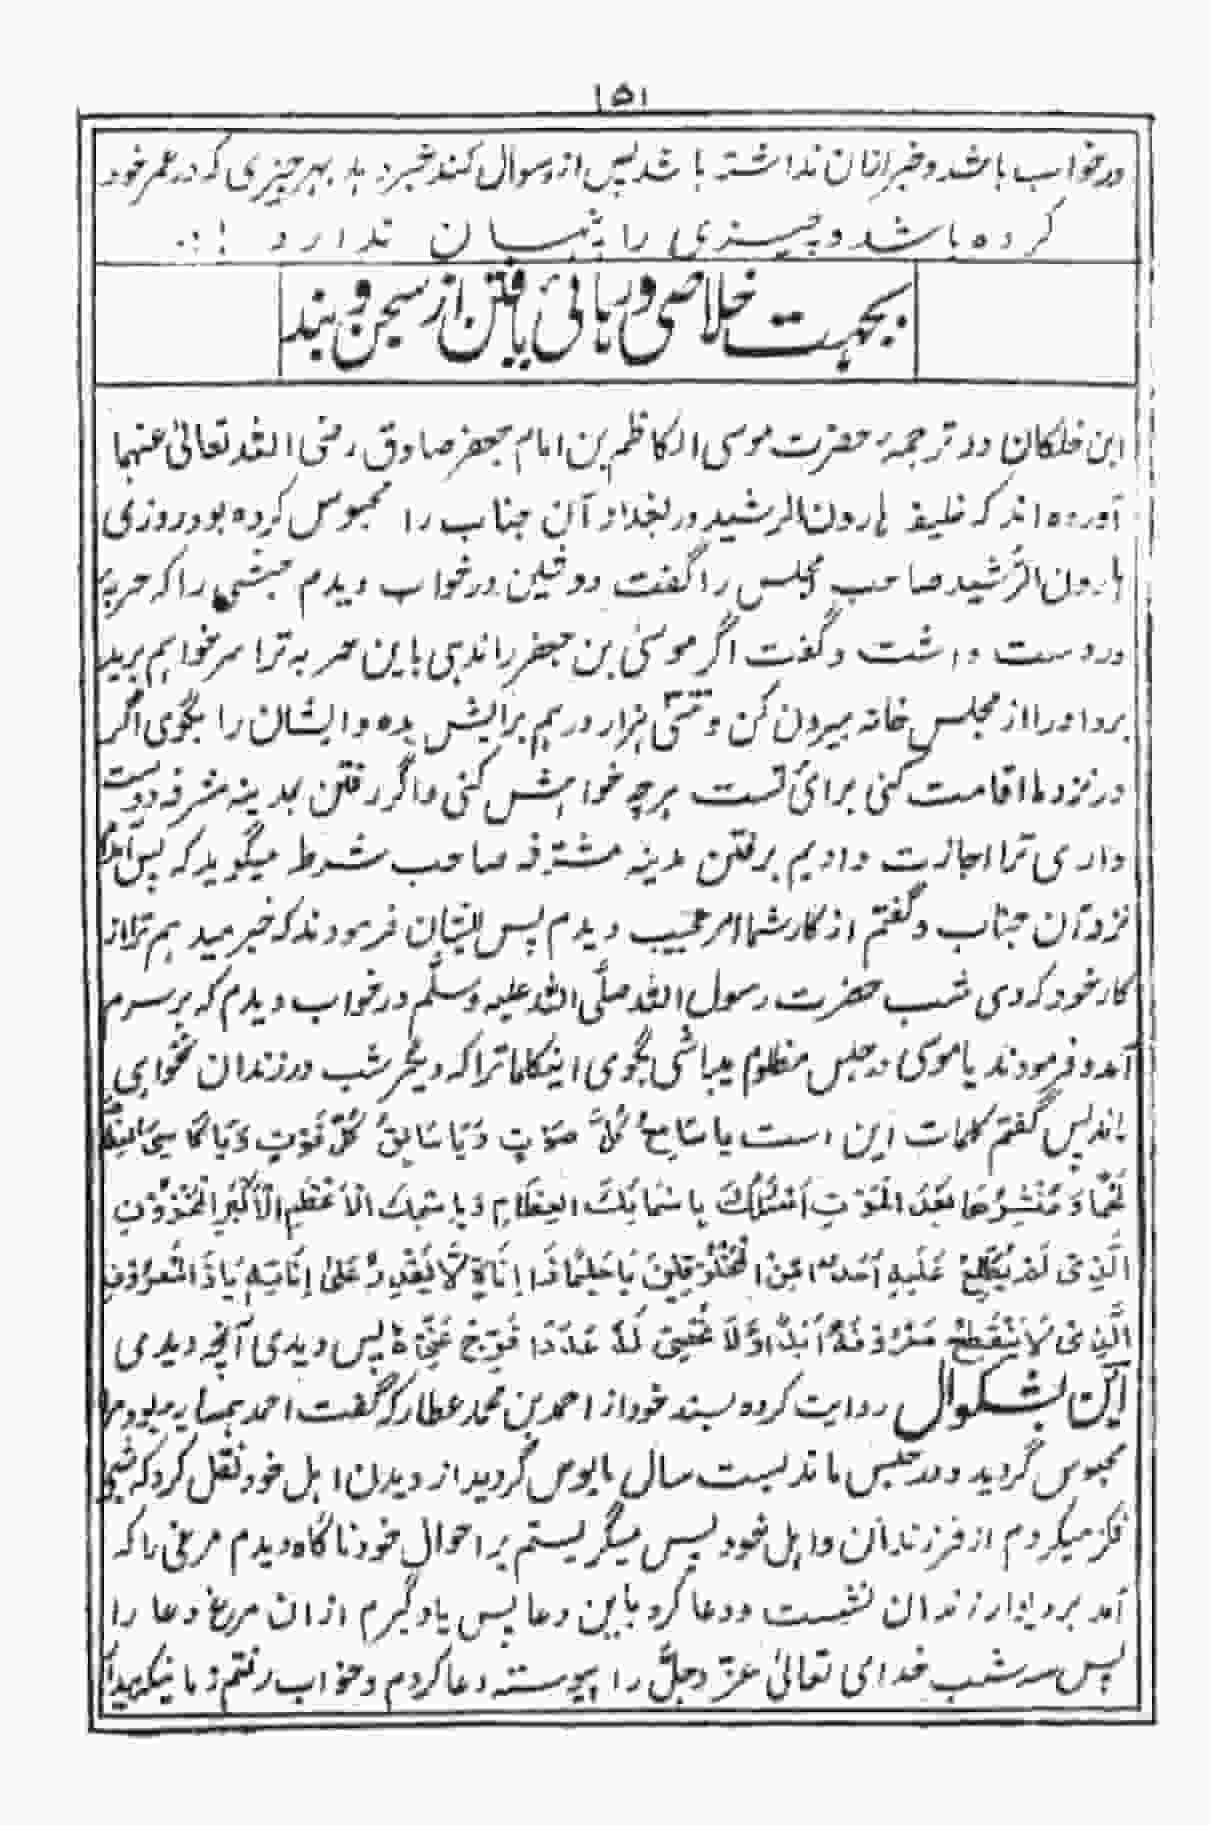 ۱۵۱
در خواب باشد و خبر ازان نداشته باشد پس از و سوال کنند خبر دهد بهر چیزی که در عمر خود
کرده باشد و چیزی را پنهان ندارد
بجهت خلاصی و رهائی یافتن از سجن و بند
ابن خلکان در ترجمهٔ حضرت موسی الکاظم بن امام جعفر صادق رضی الله تعالیٰ عنهما
آورده اند که خلیفه هارون الرشید در بغداد آن جناب را محبوس کرده بود روزی
هارون الرشید صاحب مجلس را گفت در خواب دیدم حبشی را که حربه
در دست داشت و گفت اگر موسیٰ بن جعفر را ندهی باین حربه ترا سر خواهم برید
برو او را از مجلس خانه بیرون کن و سی هزار درهم برایش بده و ایشان را بگوی اگر
در نزد ما اقامت کنی برائ تست هرچه خواهش کنی و اگر رفتن بمدینه مشرفه دوست
داری ترا اجازت دادیم برفتن مدینه مشرفه صاحب شرط میگوید که پس آمدم
نزد آن جناب و گفتم از کار شما امر عجیب دیدم پس ایشان فرمودند که خبر میدهم ترا از
کار خود که دی شب حضرت رسول الله صلّی الله علیه وسلّم در خواب دیدم که بر سرم
آمد و فرمودند یا موسی در حبس مظلوم میباشی بگوی اینکلمات را که دیگر شب در زندان نخوابی
ماند پس گفتم کلمات این است یا سَامِعَ کُلِّ صَوْتٍ وَیَا سَابِقَ کُلِّ فَوْتٍ وَیَا کَاسِیَ العِظَامِ
لَحْمًا وَ مُنْشِرُهَا بَعْدَ الْمَوْتِ اَسْئَلُكَ بِاَسْمَائِكَ العِظَامِ وَبِاِسْمِكَ الْاَعْظَمِ الْاَکْبَرِ الْمَخْزُوْنِ
الَّذِیْ لَمْ یَطَّلِعْ عَلَیْهِ اَحَدٌ مِّنَ الْمَخْلُوْقِیْنَ یَا حَلِیْمًا ذَا اِنَاةٍ لَّا یُقْدِرُ عَلیٰ اِنَاتِهٖ یَا ذَا الْمَعْرُوْفِ
الَّذِیْ لَایَنْقَطِعُ مَعْرُوْفُهٗ اَبَدًا وَّلَا نُحْصِیْ لَهٗ عَدَدًا فَرِّجْ عَنِّیْ پس دیدی آنچه دیدمی
ابن بشکوال روایت کرده بسند خود از احمد بن محمد عطار که گفت احمد همسایه ما بود و ما
محبوس گردید و در حبس ماند بیست سال مایوس گردید از دیدن اهل خود نقل کرد که شبی
فکر میکردم از فرزندان و اهل خود پس میگریستم بر احوال خود ناگاه دیدم مرغی را که
آمد بر دیوار زندان نشست و دعا کرد باین دعا پس یاد گیرم ازان مرغ دعا را
پس سه شب خدای تعالیٰ عزّ وجلّ را پیوسته دعا کردم و خواب رفتم زمانیکه بیدار